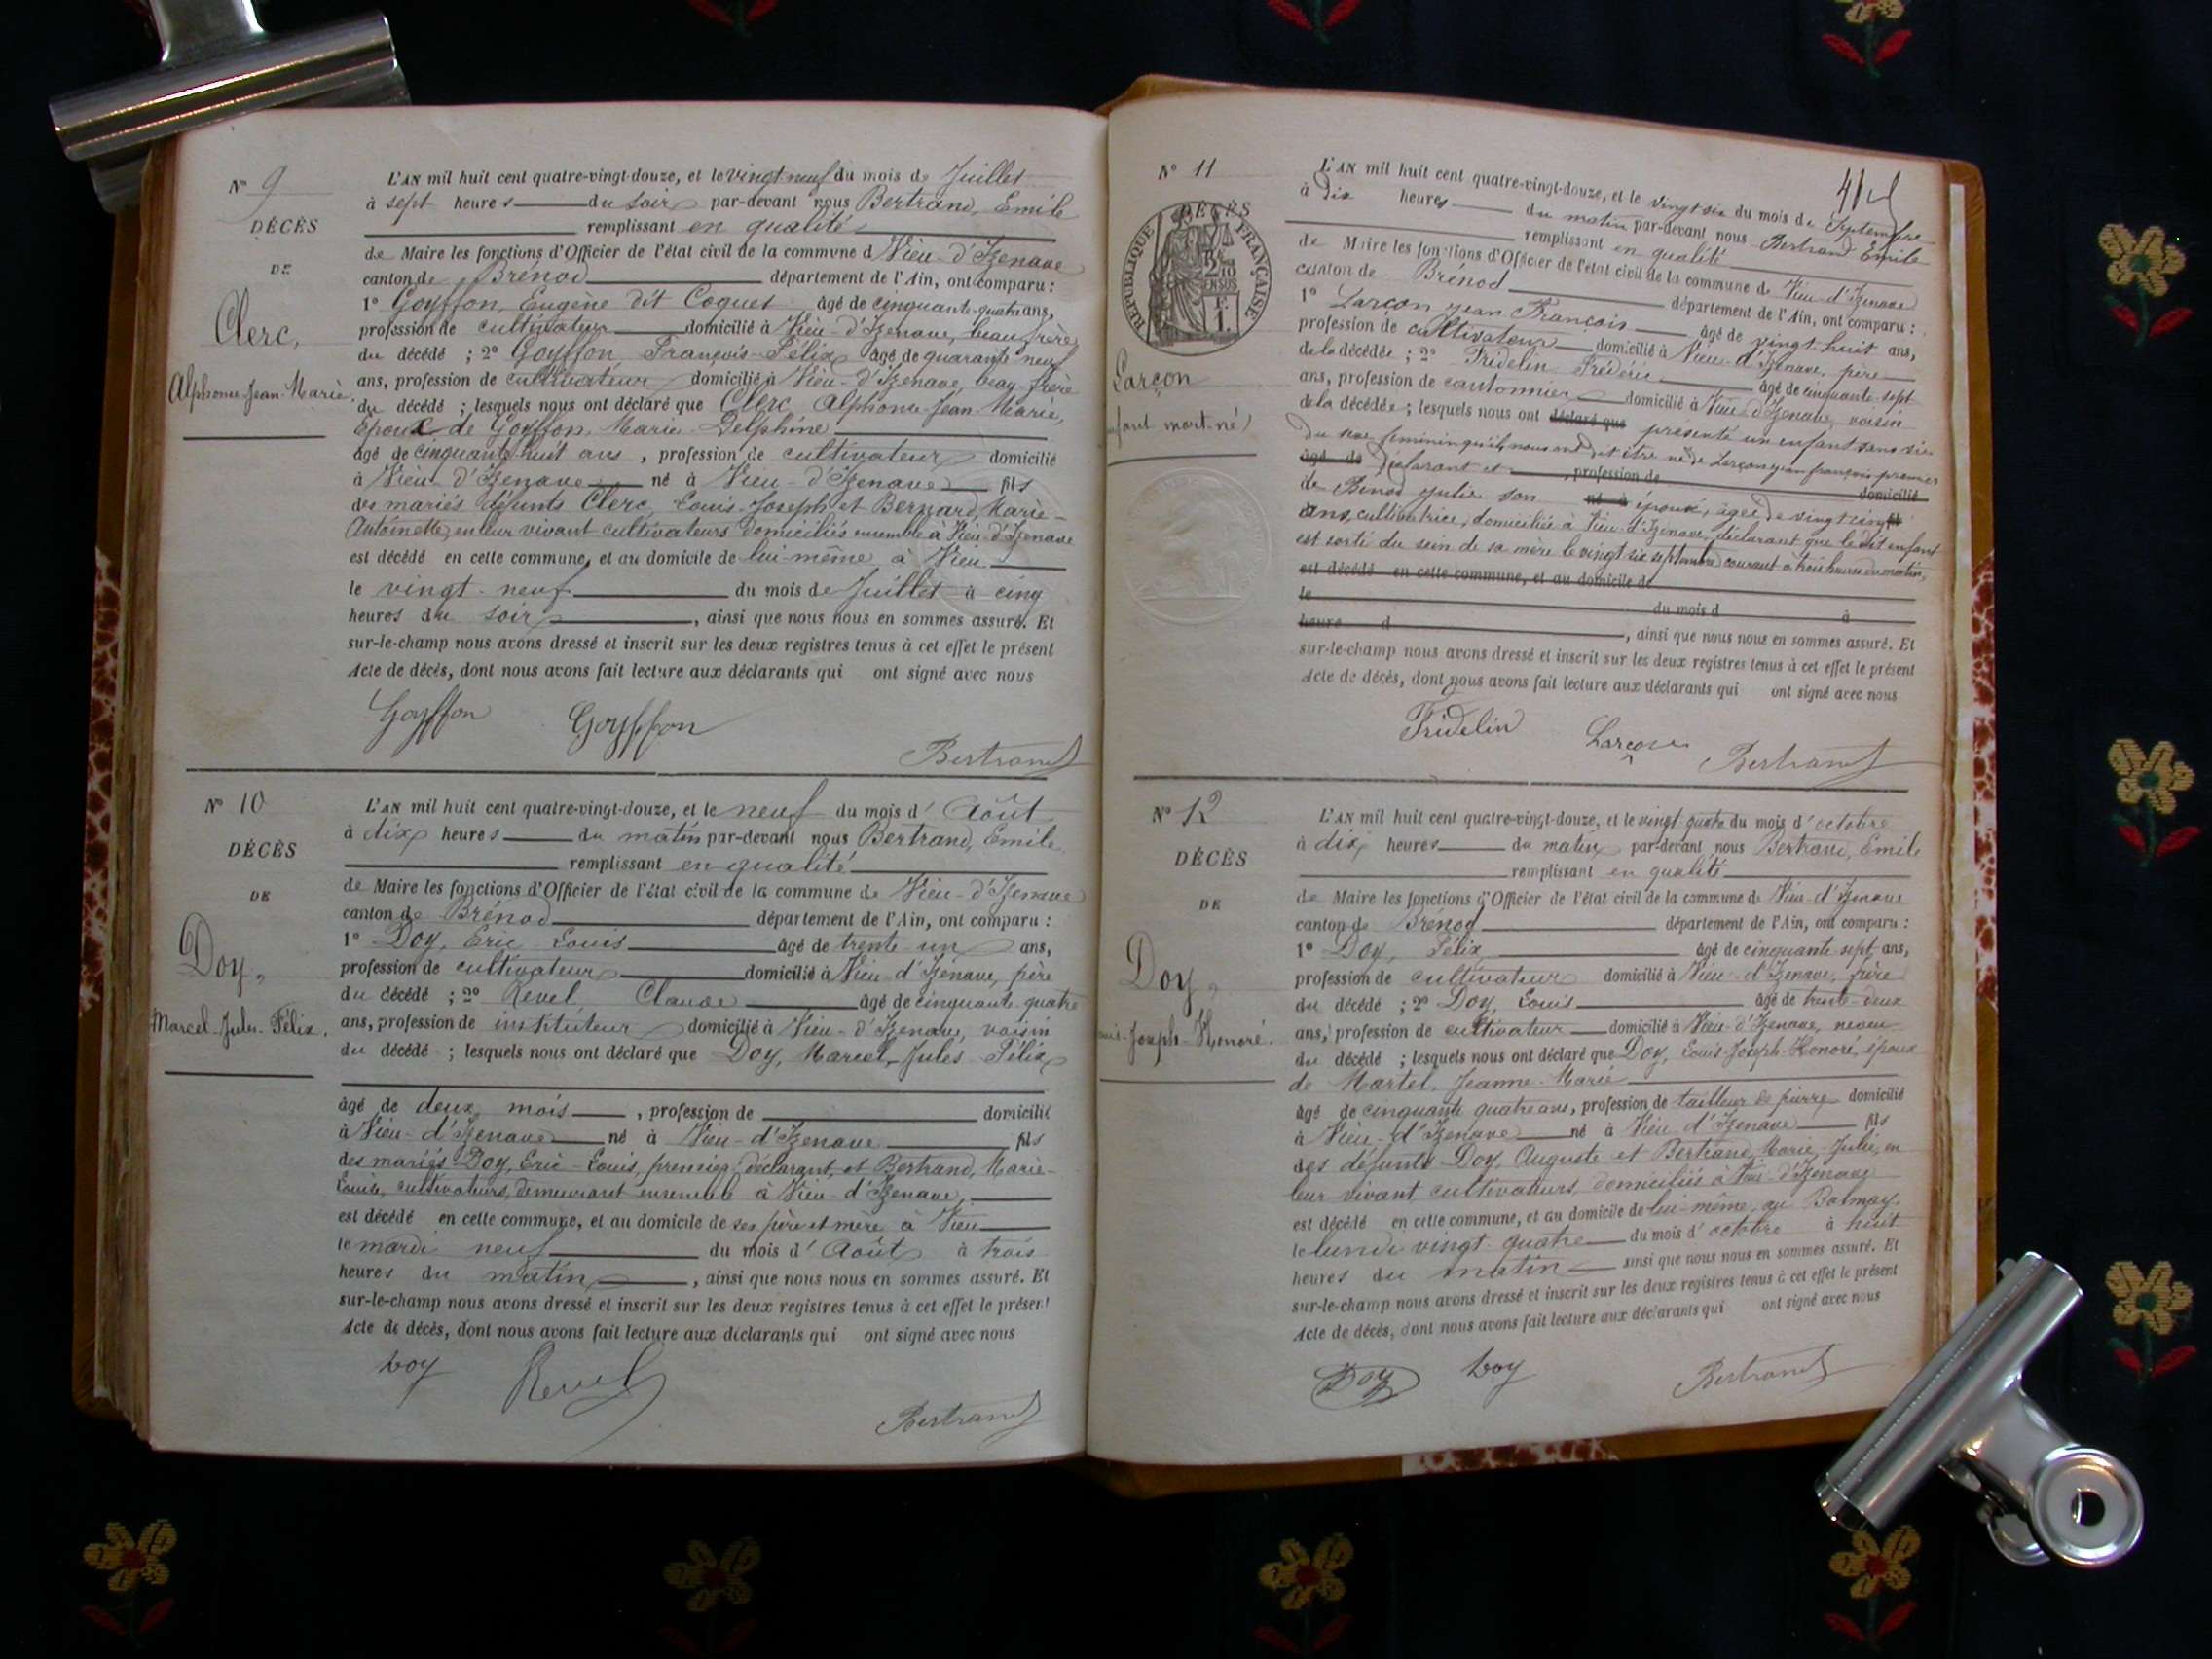 N° 9
DÉCÈS
DE
Clerc,
Alphonse-Jean-Marie.
L'AN mil huit cent quatre-vingt-douze, et le vingt neuf du mois de Juillet
à sept heures du soir par-devant nous Bertrand, Emile
remplissant en qualité
de Maire les fonctions d'Officier de l'état civil de la commune d Vieu-d'Izenave
canton de Brénod département de l'Ain, ont comparu :
1° Goyffon, Eugène dit Coquet âgé de cinquante-quatre ans,
profession de cultivateur domicilié à Vieu-d'Izenave, beau frère
du décédé ; 2° Goyffon François-Félix âgé de quarante neuf
ans, profession de cultivateur domicilié à Vieu-d'Izenave, beau-frère
du décédé ; lesquels nous ont déclaré que Clerc Alphonse-Jean-Marie,
époux de Goyffon, Marie-Delphine
âgé de cinquante-huit ans, profession de cultivateur domicilié
à Vieu d'Izenave né à Vieu-d'Izenave fils
des mariés défunts Clerc, Louis-Joseph et Bernard, Marie-
Antoinette, en leur vivant cultivateurs domiciliés ensemble à Vieu-d'Izenave
est décédé en cette commune, et au domicile de lui-même à Vieu
le vingt-neuf du mois de Juillet à cinq
heures du soir, ainsi que nous nous en sommes assuré. Et
sur-le-champ nous avons dressé et inscrit sur les deux registres tenus à cet effet le présent
Acte de décès, dont nous avons fait lecture aux déclarants qui ont signé avec nous
Goyffon Goyffon
Bertrand
N° 10
DÉCÈS
DE
Doy,
Marcel-Jules-Félix.
L'AN mil huit cent quatre-vingt-douze, et le neuf du mois d' Août
à dix heures du matin par-devant nous Bertrand, Emile
remplissant en qualité
de Maire les fonctions d'Officier de l'état civil de la commune de Vieu-d'Izenave
canton de Brénod département de l'Ain, ont comparu :
1° Doy, Eric Louis âgé de trente-un ans,
profession de cultivateur domicilié à Vieu-d'Izenave, père
du décédé ; 2° Revel Claude âgé de cinquante-quatre
ans, profession de instituteur domicilié à Vieu-d'Izenave, voisin
du décédé ; lesquels nous ont déclaré que Doy, Marcel-Jules-Félix
âgé de deux mois, profession de domicilié
à Vieu-d'Izenave né à Vieu-d'Izenave fils
des mariés Doy, Eric-Louis, premier déclarant, et Bertrand, Marie-
Louise, cultivateurs, demeurant ensemble à Vieu-d'Izenave,
est décédé en cette commune, et au domicile de ses père et mère à Vieu
le mardi neuf du mois d' Août à trois
heures du matin, ainsi que nous nous en sommes assuré. Et
sur-le-champ nous avons dressé et inscrit sur les deux registres tenus à cet effet le présent
Acte de décès, dont nous avons fait lecture aux déclarants qui ont signé avec nous
Doy Revel
Bertrand
N° 11
DÉCÈS
RÉPUBLIQUE FRANÇAISE
2/10 EN SUS
F.
1.
Larçon
mort-né)
L'AN mil huit cent quatre-vingt-douze, et le vingt six du mois de Septembre
à dix heures du matin par-devant nous Bertrand Emile
remplissant en qualité
de Maire les fonctions d'Officier de l'état civil de la commune de Vieu-d'Izenave
canton de Brénod département de l'Ain, ont comparu :
1° Larçon Jean François âgé de vingt-huit ans,
profession de cultivateur domicilié à Vieu-d'Izenave, père
de la décédée ; 2° Fridelin Frédéric âgé de cinquante-sept
ans, profession de cantonnier domicilié à Vieu-d'Izenave, voisin
de la décédée ; lesquels nous ont déclaré que présenté un enfant sans vie
du sexe féminin qu'ils nous ont dit être né de Larçon Jean François premier
âgé de déclarant et profession de domicilié
de Binod Julie son né à épouse, âgée de vingt cinq
ans, cultivatrice, domiciliée à Vieu-d'Izenave, déclarant que le dit enfant
est sorti du sein de sa mère le vingt six septembre courant à trois heures du matin,
est décédé en cette commune, et au domicile de
le du mois d à
heure d, ainsi que nous nous en sommes assuré. Et
sur-le-champ nous avons dressé et inscrit sur les deux registres tenus à cet effet le présent
Acte de décès, dont nous avons fait lecture aux déclarants qui ont signé avec nous
Fridelin Larçon Bertrand
N° 12
DÉCÈS
DE
Doy,
Joseph-Honoré.
L'AN mil huit cent quatre-vingt-douze, et le vingt quatre du mois d' octobre
à dix heures du matin par-devant nous Bertrand, Emile
remplissant en qualité
de Maire les fonctions d'Officier de l'état civil de la commune de Vieu-d'Izenave
canton de Brénod département de l'Ain, ont comparu :
1° Doy, Félix, âgé de cinquante-sept ans,
profession de cultivateur domicilié à Vieu-d'Izenave, frère
du décédé ; 2° Doy, Louis âgé de trente-deux
ans, profession de cultivateur domicilié à Vieu-d'Izenave, neveu
du décédé ; lesquels nous ont déclaré que Doy, Louis-Joseph-Honoré, époux
de Martel, Jeanne-Marie
âgé de cinquante quatre ans, profession de tailleur de pierre domicilié
à Vieu-d'Izenave né à Vieu d'Izenave fils
des défunts Doy, Auguste et Bertrand, Marie-Julie, en
leur vivant cultivateurs, domiciliés à Vieu-d'Izenave
est décédé en cette commune, et au domicile de lui-même, au Balmay,
le lundi vingt-quatre du mois d' octobre à huit
heures du matin ainsi que nous nous en sommes assuré. Et
sur-le-champ nous avons dressé et inscrit sur les deux registres tenus à cet effet le présent
Acte de décès, dont nous avons fait lecture aux déclarants qui ont signé avec nous
Doy Doy Bertrand